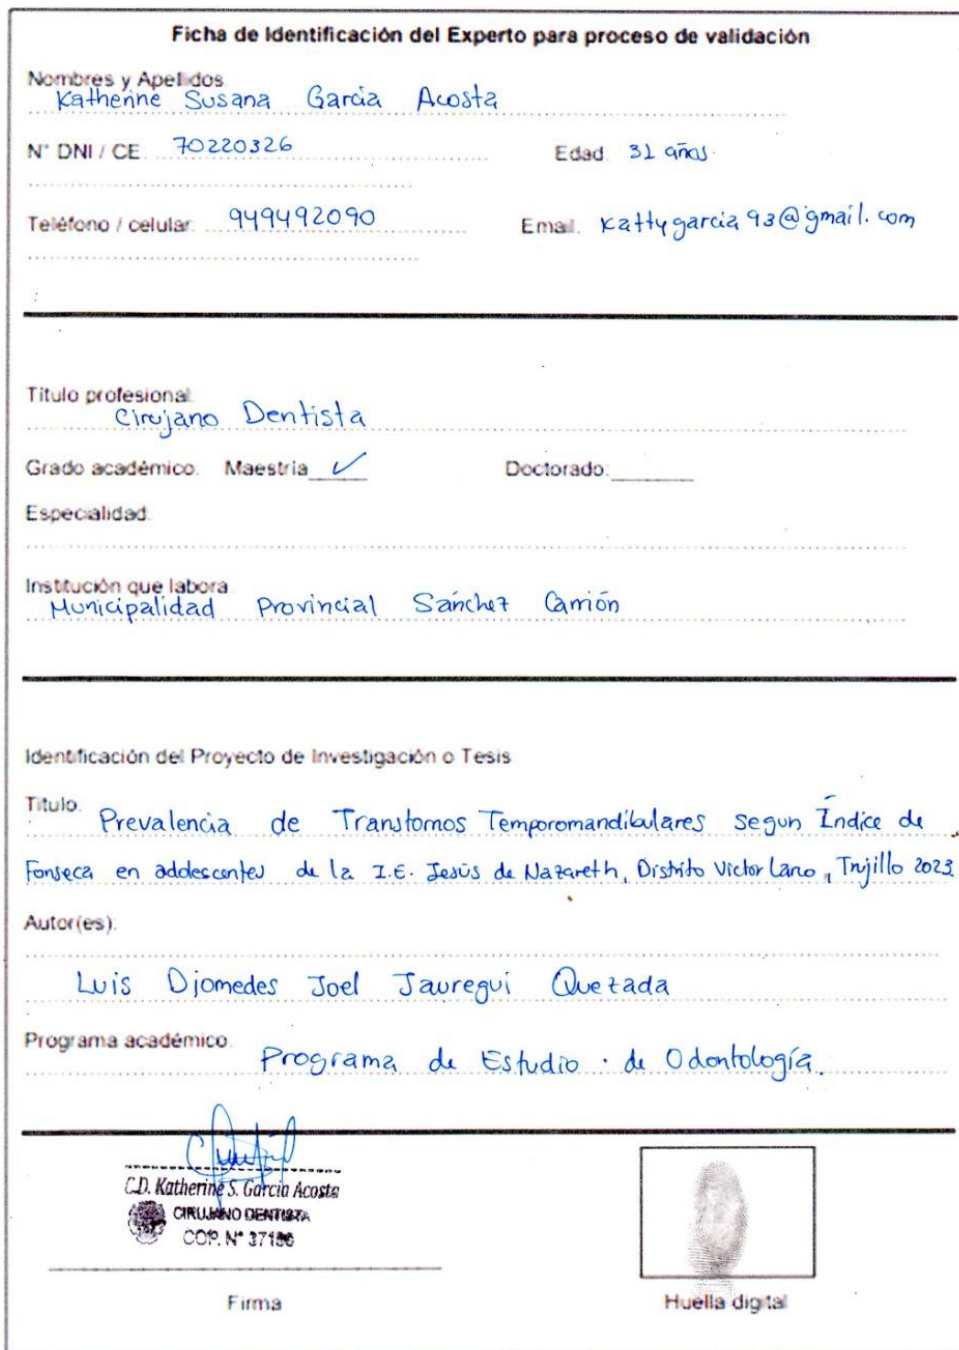 Ficha de Identificación del Experto para proceso de validación
Nombres y Apellidos
Katherine Susana García Acosta
N° DNI / CE 70220326 Edad 31 años.
Teléfono / celular: 949492090 Email. Kattygarcia93@gmail.com
Título profesional
Cirujano Dentista
Grado académico. Maestría ✓ Doctorado:
Especialidad.
Institución que labora
Municipalidad Provincial Sánchez Carrión
Identificación del Proyecto de Investigación o Tesis
Título. Prevalencia de Transtornos Temporomandibulares segun Índice de
Fonseca en addescentes de la I.E. Jesús de Nazareth, Distrito Victor Larco, Trujillo 2023
Autor(es):
Luis Diomedes Joel Jauregui Quezada
Programa académico. Programa de Estudio de Odontología.
C.D. Katherine S. García Acosta
CIRUJANO DENTISTA
COP. N° 37186
Firma Huella digital